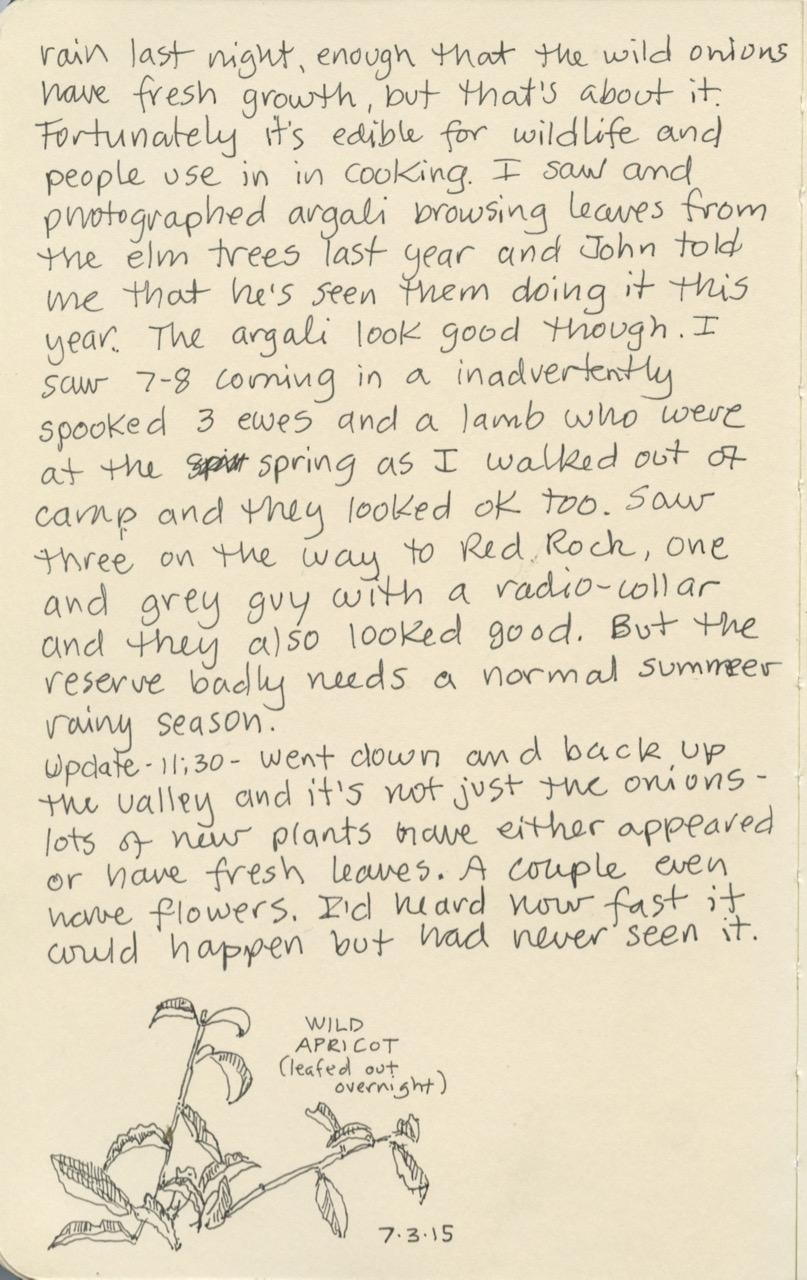 rain last night, enough that the wild onions
have fresh growth, but that's about it.
Fortunately it's edible for wildlife and
people use in in cooking. I saw and
photographed argali browsing leaves from
the elm trees last year and John told
me that he's seen them doing it this
year. The argali look good though. I
saw 7-8 coming in a inadvertently
spooked 3 ewes and a lamb who were
at the spring as I walked out of
camp and they looked ok too. Saw
three on the way to Red Rock, one
and grey guy with a radio-collar
and they also looked good. But the
reserve badly needs a normal summer
rainy season.
Update - 11:30 - went down and back up
the valley and it's not just the onions -
lots of new plants have either appeared
or have fresh leaves. A couple even
have flowers. I'd heard how fast it
could happen but had never seen it.
WILD
APRICOT
(leafed out
overnight)
7.3.15